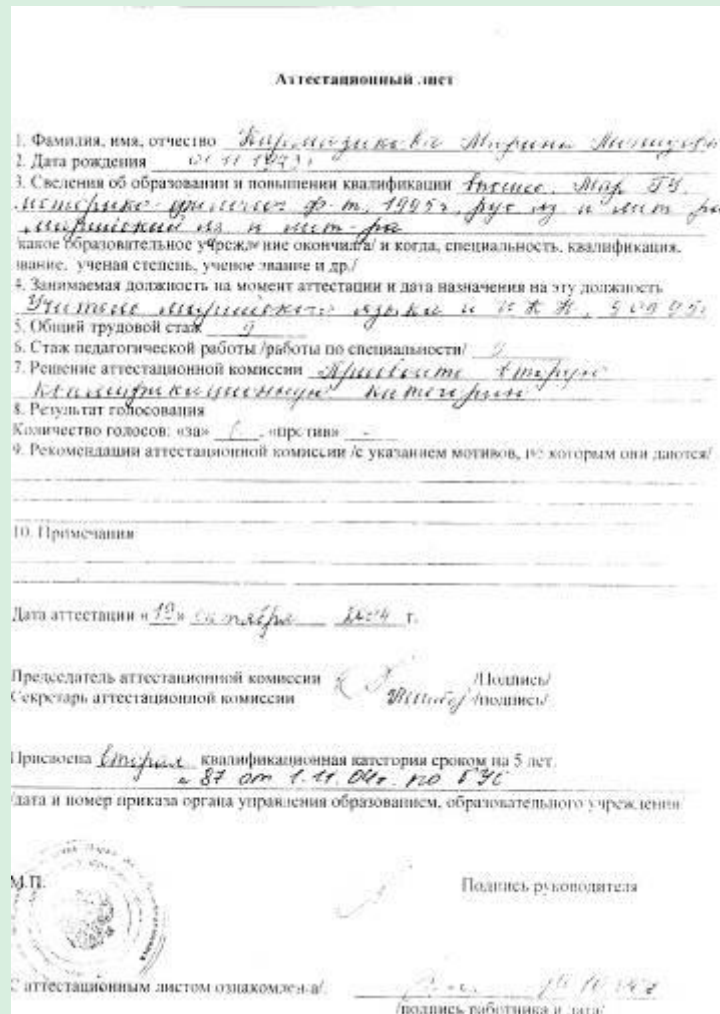 Аттестационный лист
1. Фамилия, имя, отчество Марина
2. Дата рождения
3. Сведения об образовании и повышении квалификации высшее, Мар ГУ,
историко-филолог ф-т, 1995г, рус яз и лит-ра
марийский яз и лит-ра
/какое образовательное учреждение окончил/а/ и когда, специальность, квалификация,
звание, ученая степень, ученое звание и др./
4. Занимаемая должность на момент аттестации и дата назначения на эту должность
Учитель марийского языка и
5. Общий трудовой стаж 9
6. Стаж педагогической работы /работы по специальности/ 9
7. Решение аттестационной комиссии Присвоить вторую
квалификационную категорию
8. Результат голосования
Количество голосов: «за» «против» -
9. Рекомендации аттестационной комиссии /с указанием мотивов, по которым они даются/
10. Примечания
Дата аттестации «19» октября 2004 г.
Председатель аттестационной комиссии /Подпись/
Секретарь аттестационной комиссии /подпись/
Присвоена вторая квалификационная категория сроком на 5 лет.
87 от 1.11.04г. по
/дата и номер приказа органа управления образованием, образовательного учреждения/
М.П. Подпись руководителя
С аттестационным листом ознакомлен/а/
/подпись работника и дата/